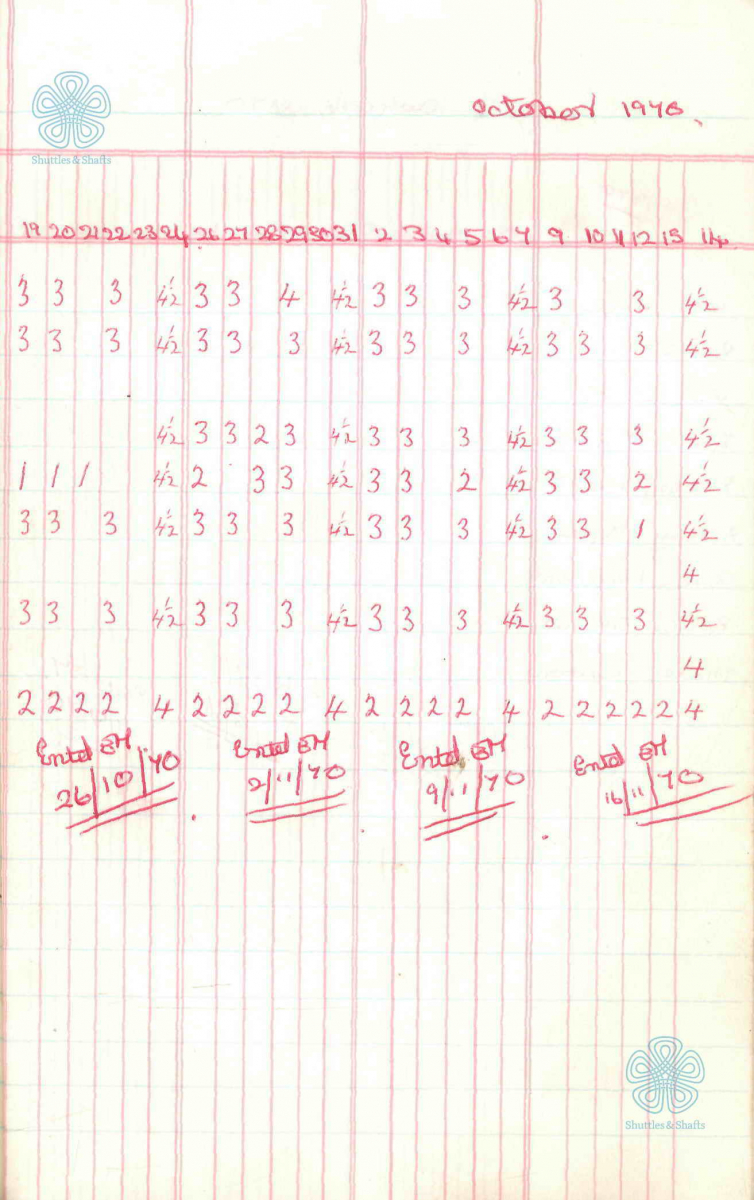 October 1970.
Shuttles & Shafts
19 20 21 22 23 24 26 27 28 29 30 31 2 3 4 5 6 7 9 10 11 12 13 14
3 3 3 4½ 3 3 4 4½ 3 3 3 4½ 3 3 4½
3 3 3 4½ 3 3 3 4½ 3 3 3 4½ 3 3 3 4½
4½ 3 3 2 3 4½ 3 3 3 4½ 3 3 3 4½
1 1 1 4½ 2 3 3 4½ 3 3 2 4½ 3 3 2 4½
3 3 3 4½ 3 3 3 4½ 3 3 3 4½ 3 3 1 4½
4
3 3 3 4½ 3 3 3 4½ 3 3 3 4½ 3 3 3 4½
4
2 2 2 2 4 2 2 2 2 4 2 2 2 2 4 2 2 2 2 2 4
Entd 26/10/70
Entd 2/11/70
Entd 9/11/70
Entd 16/11/70
Shuttles & Shafts